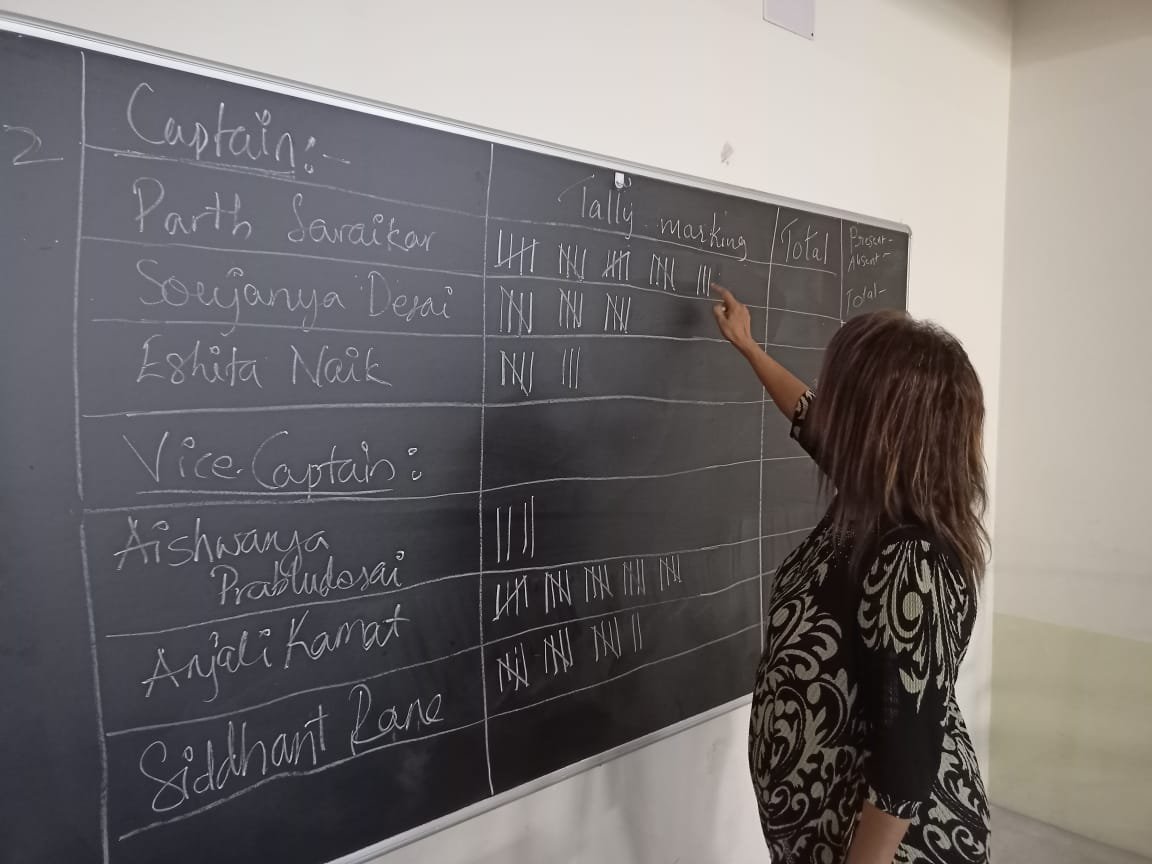 2
Captain:-
Tally marking
Total
Present-
Absent-
Total-
Parth Saraikar
Soujanya Desai
Eshita Naik
Vice-Captain:
Aishwarya
Prabhudesai
Anjali Kamat
Siddhant Rane